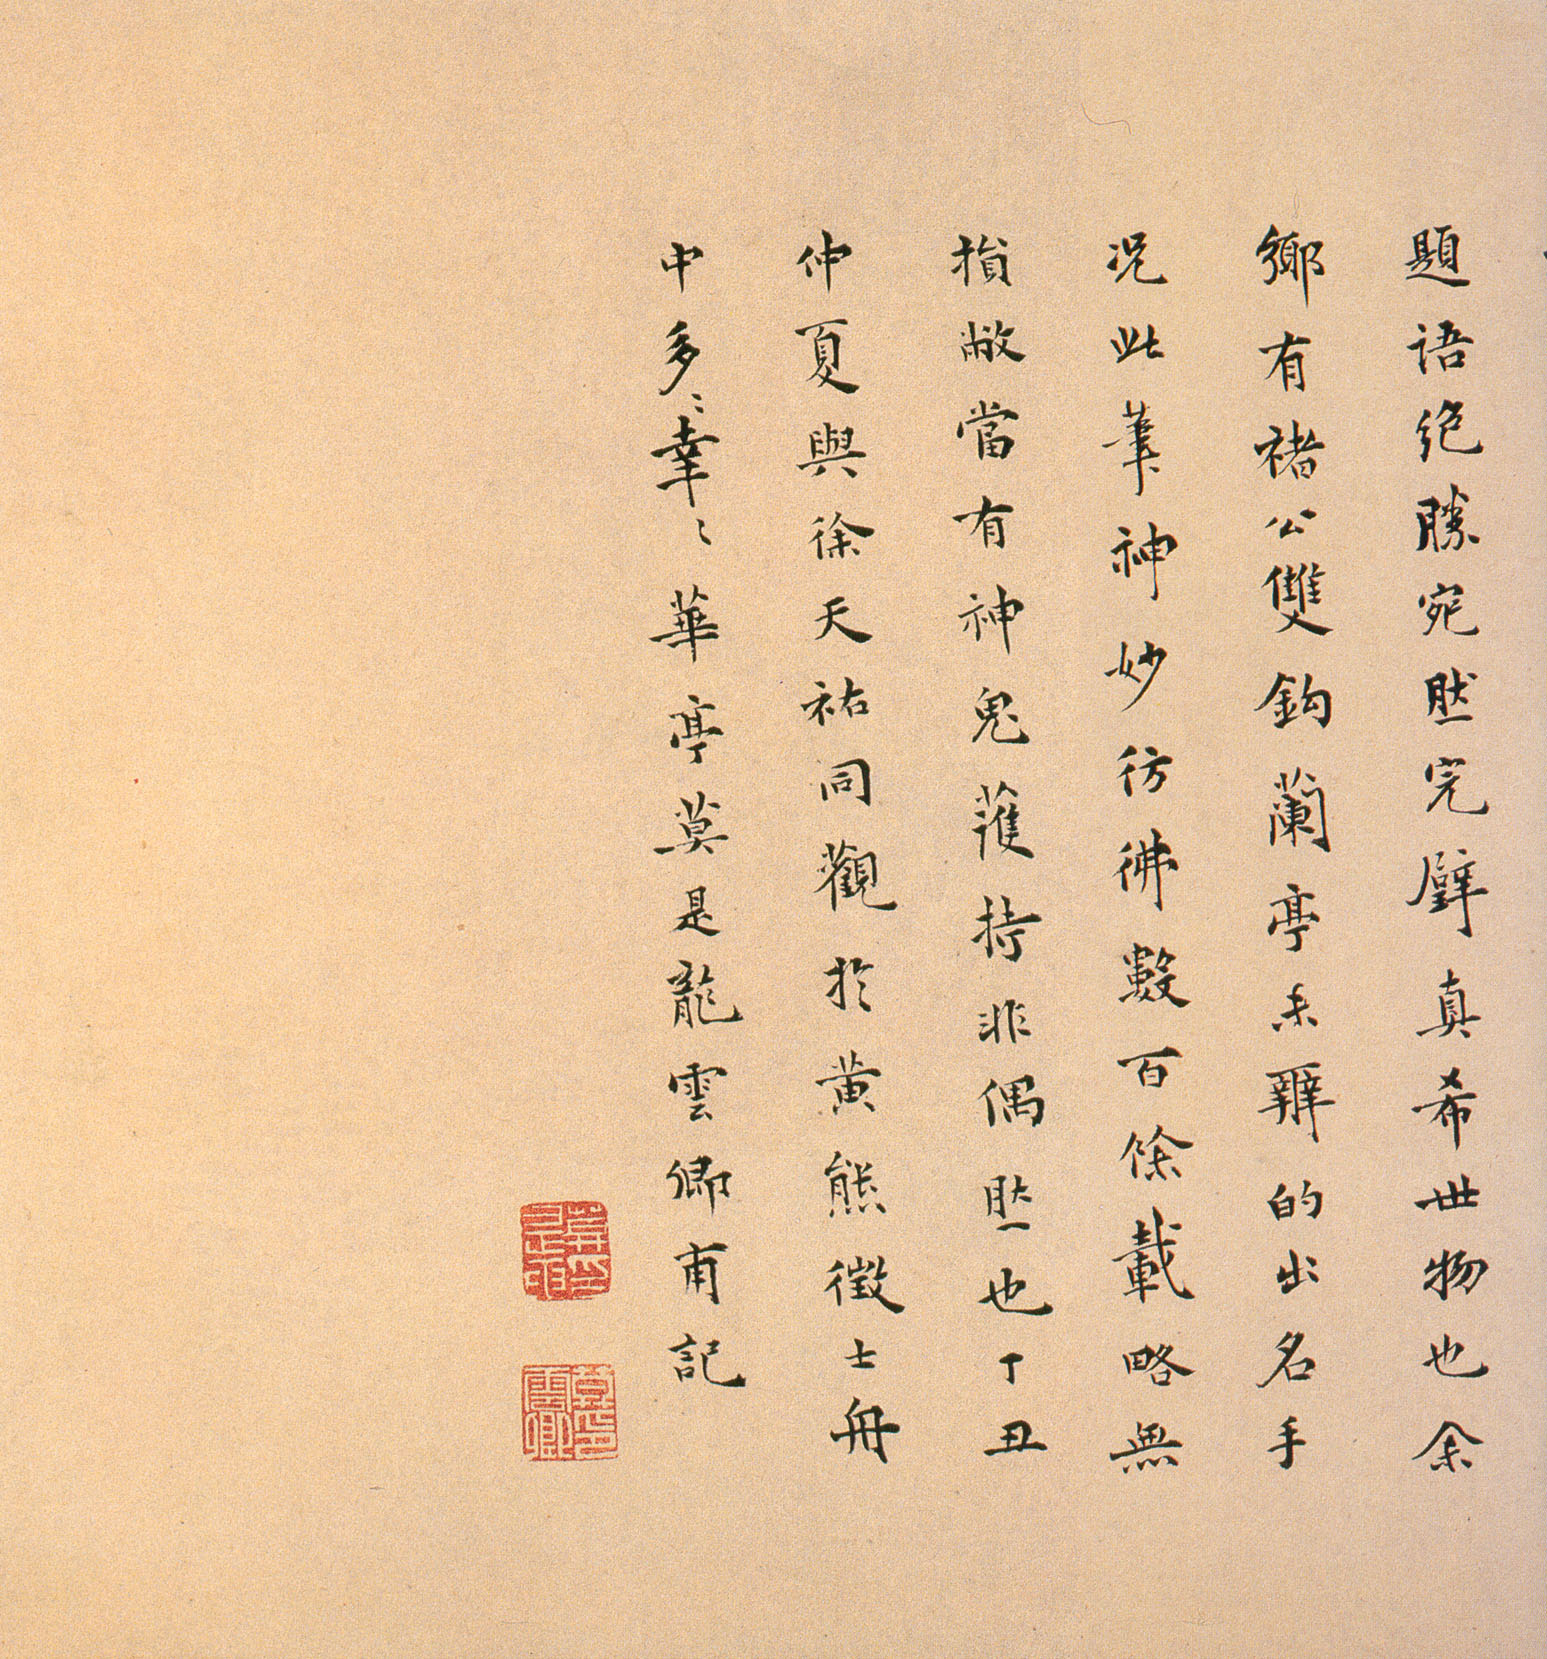 題語绝勝宛然完璧真希世物也余
鄉有褚公雙鈎蘭亭未辨的出名手
况此筆神妙彷彿數百餘載略無
損敝當有神鬼護持非偶然也丁丑
仲夏與徐天祐同觀於黄熊徵士舟
中多〻幸〻華亭莫是龍雲卿甫記
雲卿